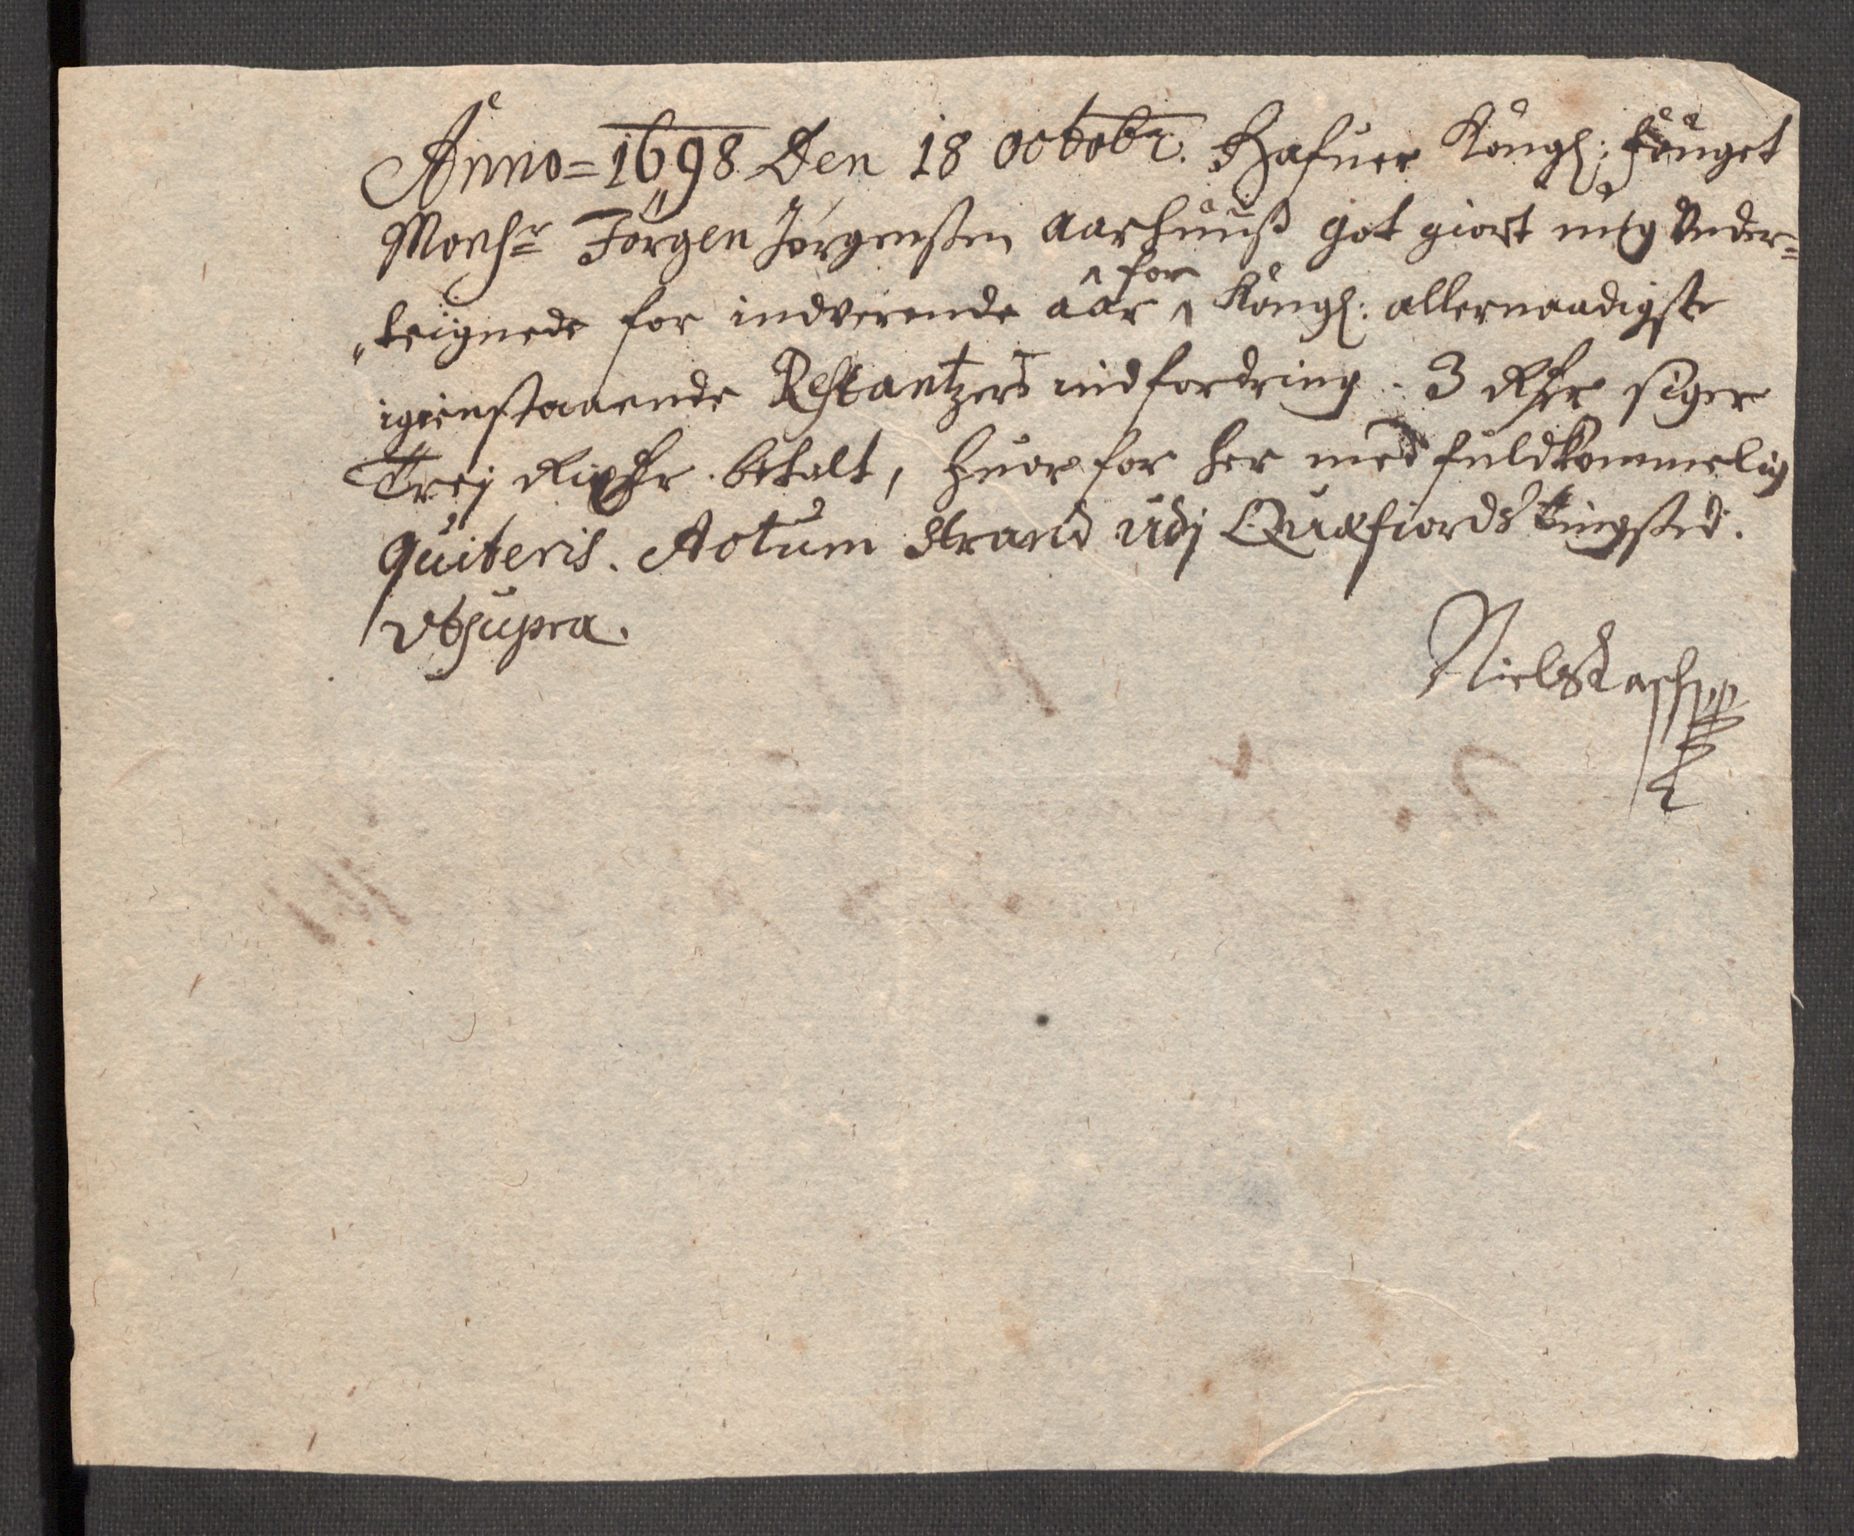 Anno= 1698 Den 18 octobr. Hafuer Kongl: fouget
Monsr Jörgen Jørgenssen Aarhuuss got giort mig Under=
teignede for indverende aar for Kongl: allernaadigste
igienstaaende Restantzers indfordring. 3 Rdr siger
Trej Rixdr. betalt, huor for her med fuldkommelig
quiteris. Actum Strand udj Quæfiords tingsted.
Vtsupra.
Niels